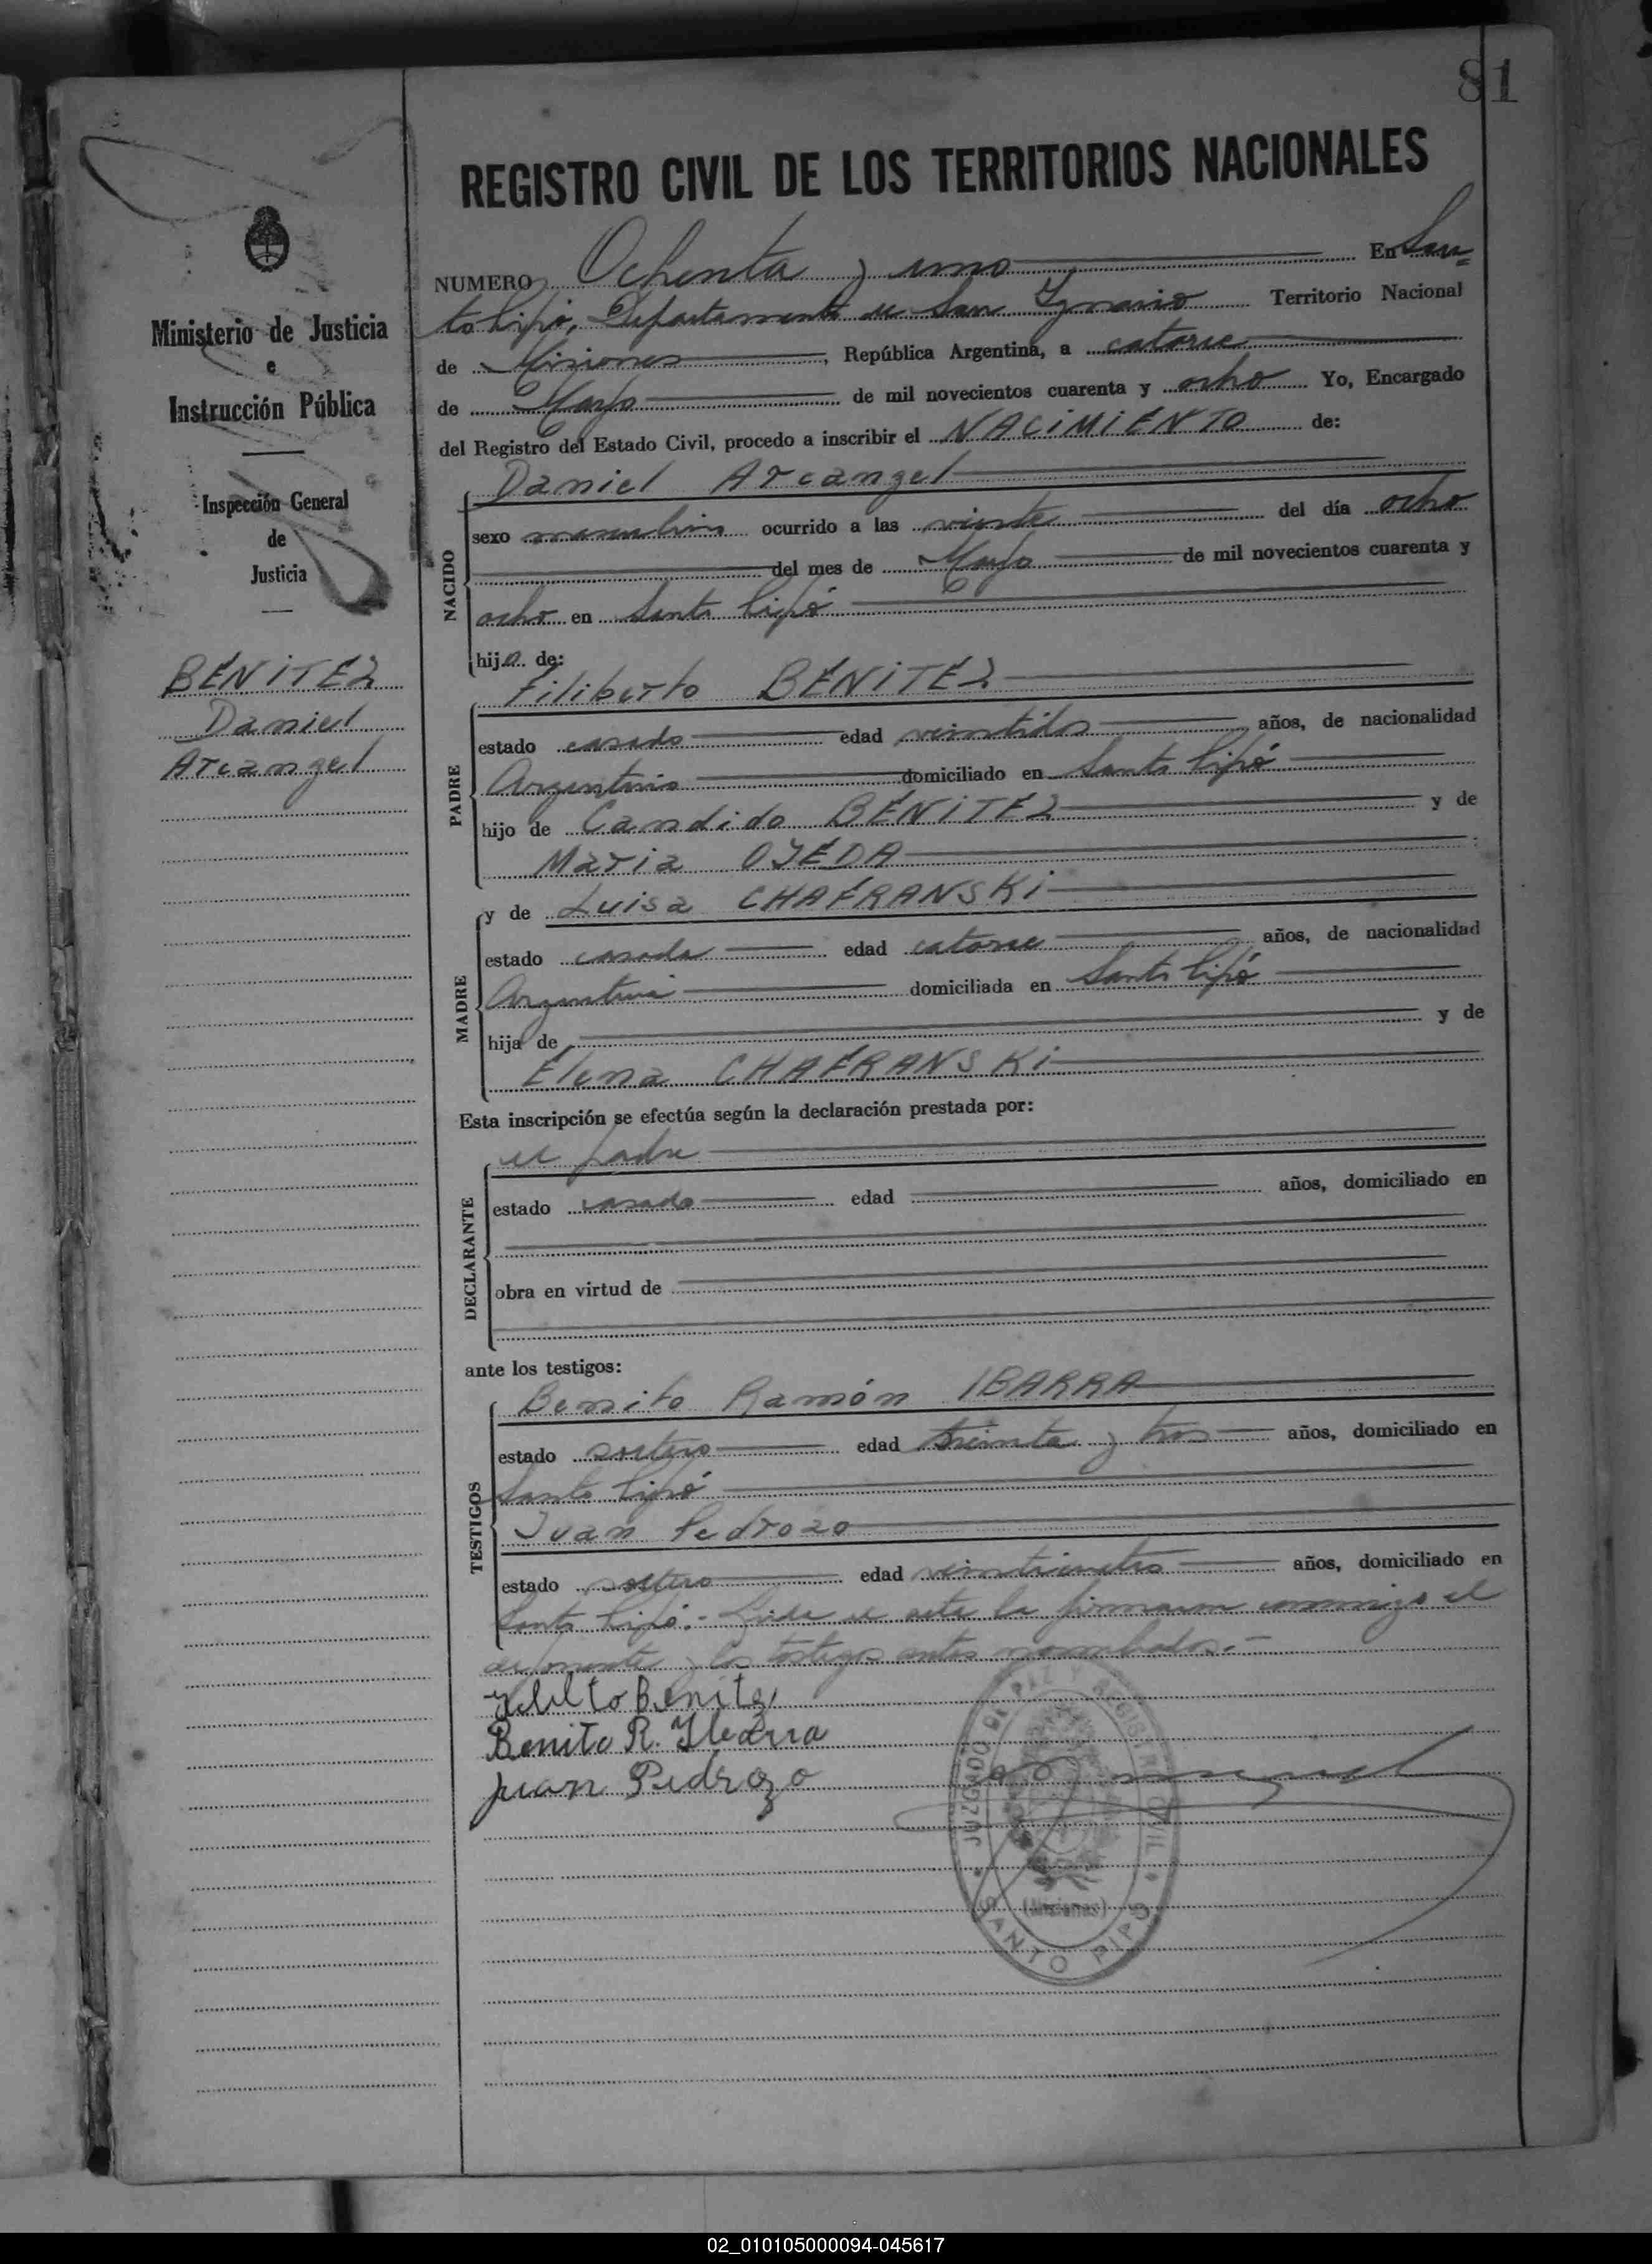 81
REGISTRO CIVIL DE LOS TERRITORIOS NACIONALES
Ministerio de Justicia
e
Instrucción Pública
Inspección General
de
Justicia
BÉNITÉZ
Daniel
Arcangel
NUMERO Ochenta y uno En San=
to Pipó, Departamento de San Ygnacio Territorio Nacional
de Misiones, República Argentina, a catorce
de Mayo de mil novecientos cuarenta y ocho Yo, Encargado
del Registro del Estado Civil, procedo a inscribir el NACIMIENTO de:
NACIDO
Daniel Arcangel
sexo masculino ocurrido a las veinte del día ocho
del mes de Mayo de mil novecientos cuarenta y
ocho en Santo Pipó
hijo de:
PADRE
Filiberto BÉNITÉZ
estado casado edad veintidos años, de nacionalidad
Argentino domiciliado en Santo Pipó
hijo de Candido BÉNITÉZ y de
Maria OJÉDA
MADRE
y de Luisa CHAFRANSKI
estado casada edad catorce años, de nacionalidad
Argentina domiciliada en Santo Pipó
hija de y de
Elena CHAFRANSKI
Esta inscripción se efectúa según la declaración prestada por:
DECLARANTE
el padre
estado casado edad años, domiciliado en
obra en virtud de
ante los testigos:
TESTIGOS
Benito Ramón IBARRA
estado soltero edad treinta y tres años, domiciliado en
Santo Pipó
Juan Pedrozo
estado soltero edad veinticuatro años, domiciliado en
Santo Pipó.- Leida el acta la firmaron conmigo el
deponente y los testigos antes nombrados.-
Benitez
Benito R. Ybarra
Juan Pedrozo
JUZGADO DE PAZ Y REGISTRO CIVIL
(Misiones)
SANTO PIPO
02_010105000094-045617